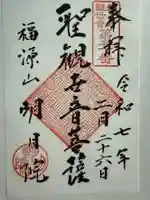 奉拝
令和七年
二月二十六日
聖観世音菩薩
福源山
明月院